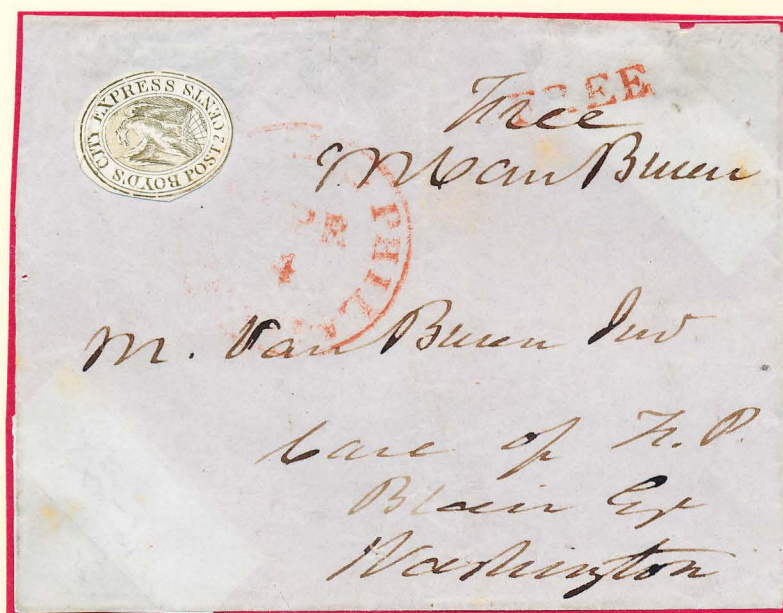 BOYD'S CITY EXPRESS POST 2 CENTS
FREE
Free
M Van Buren
PHILA
4
M. Van Buren Junr
Care of F. P.
Blair Esqr
Washington